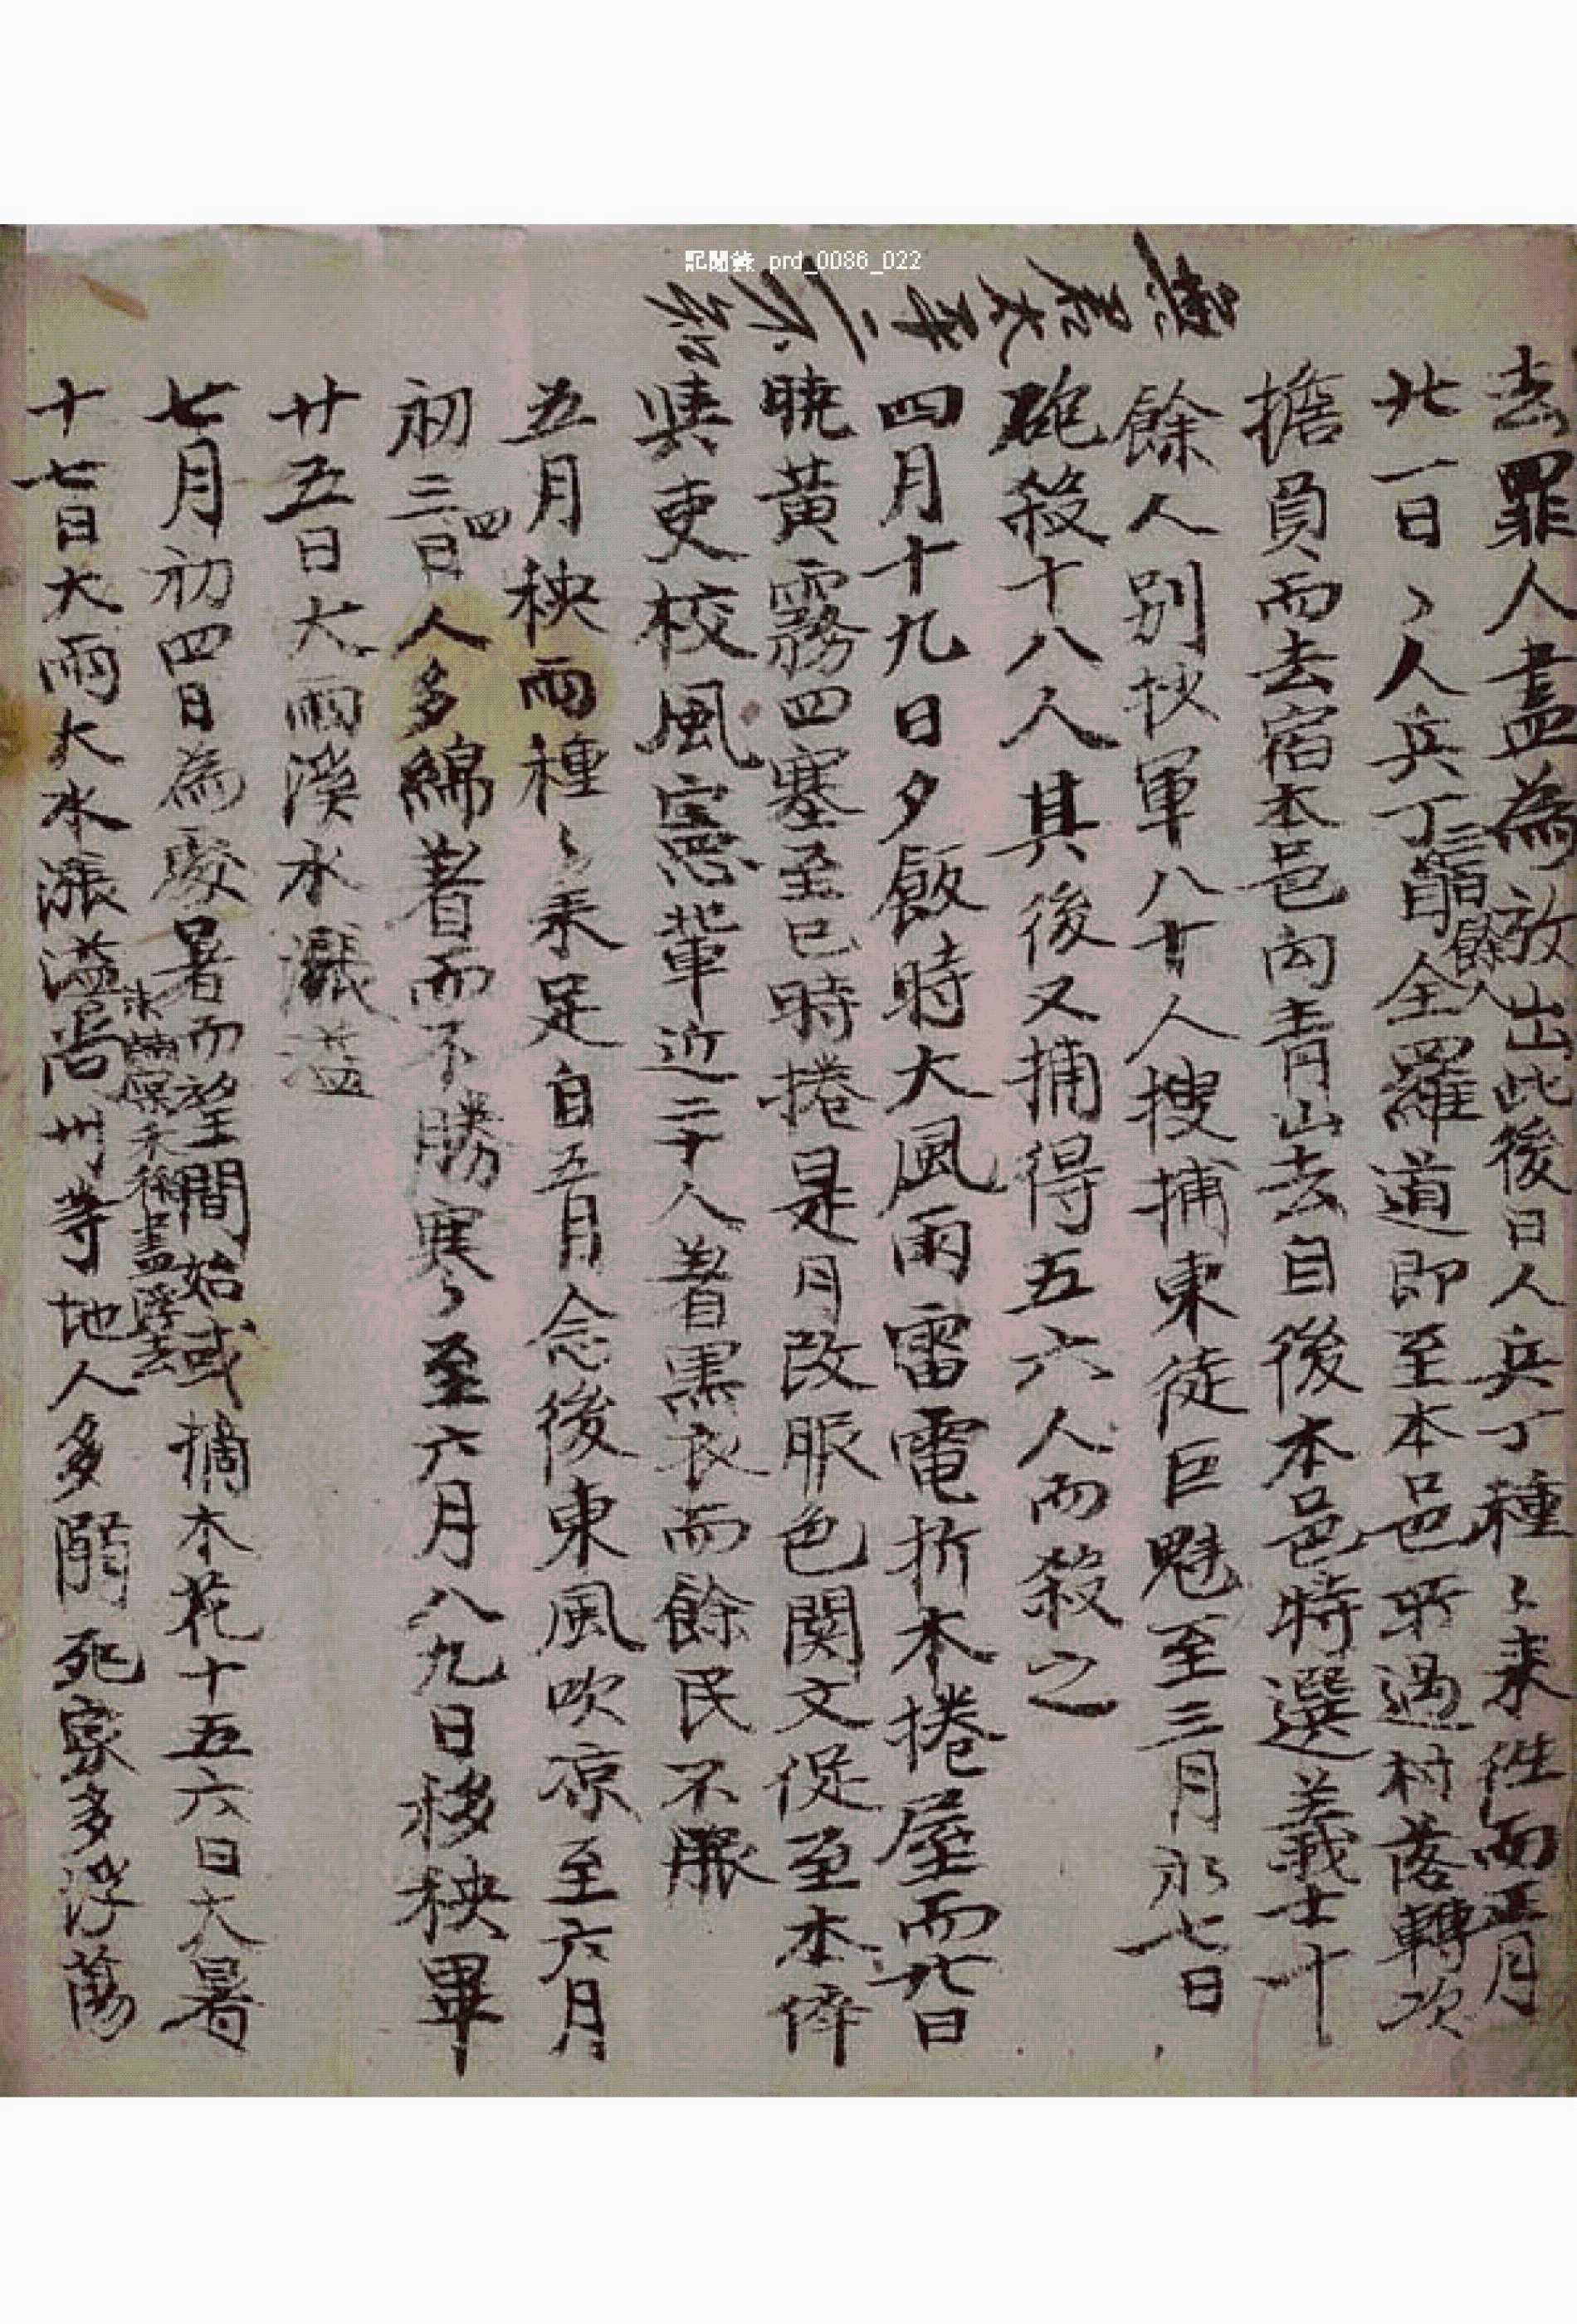 記聞錄 prd_0086_022
去罪人盡爲放出此後日人兵丁種〻來往而正月
廿一日〻人兵丁三百餘人自全羅道即至本邑所過村落轉次
擔負而去宿本邑向青山去自後本邑特選義士十
餘人別抄軍八十人搜捕東徒巨魁至三月初七日
砲殺十八人其後又捕得五六人而殺之
四月十九日夕飯時大風雨雷電折木捲屋而廿日
曉黃霧四塞至巳時捲是月改服色関文促至本倅
與吏校風憲輩近二十人着黑衣而餘民不服
五月秧雨種〻來足自五月念後東風吹凉至六月
初三四日人多綿着而不勝寒〻至六月八九日移秧畢
廿五日大雨溪水漲溢
七月初四日爲處暑而望間始或摘木花十五六日大暑
十七日大雨大水漲溢尚州等地人多溺死家多浮蕩